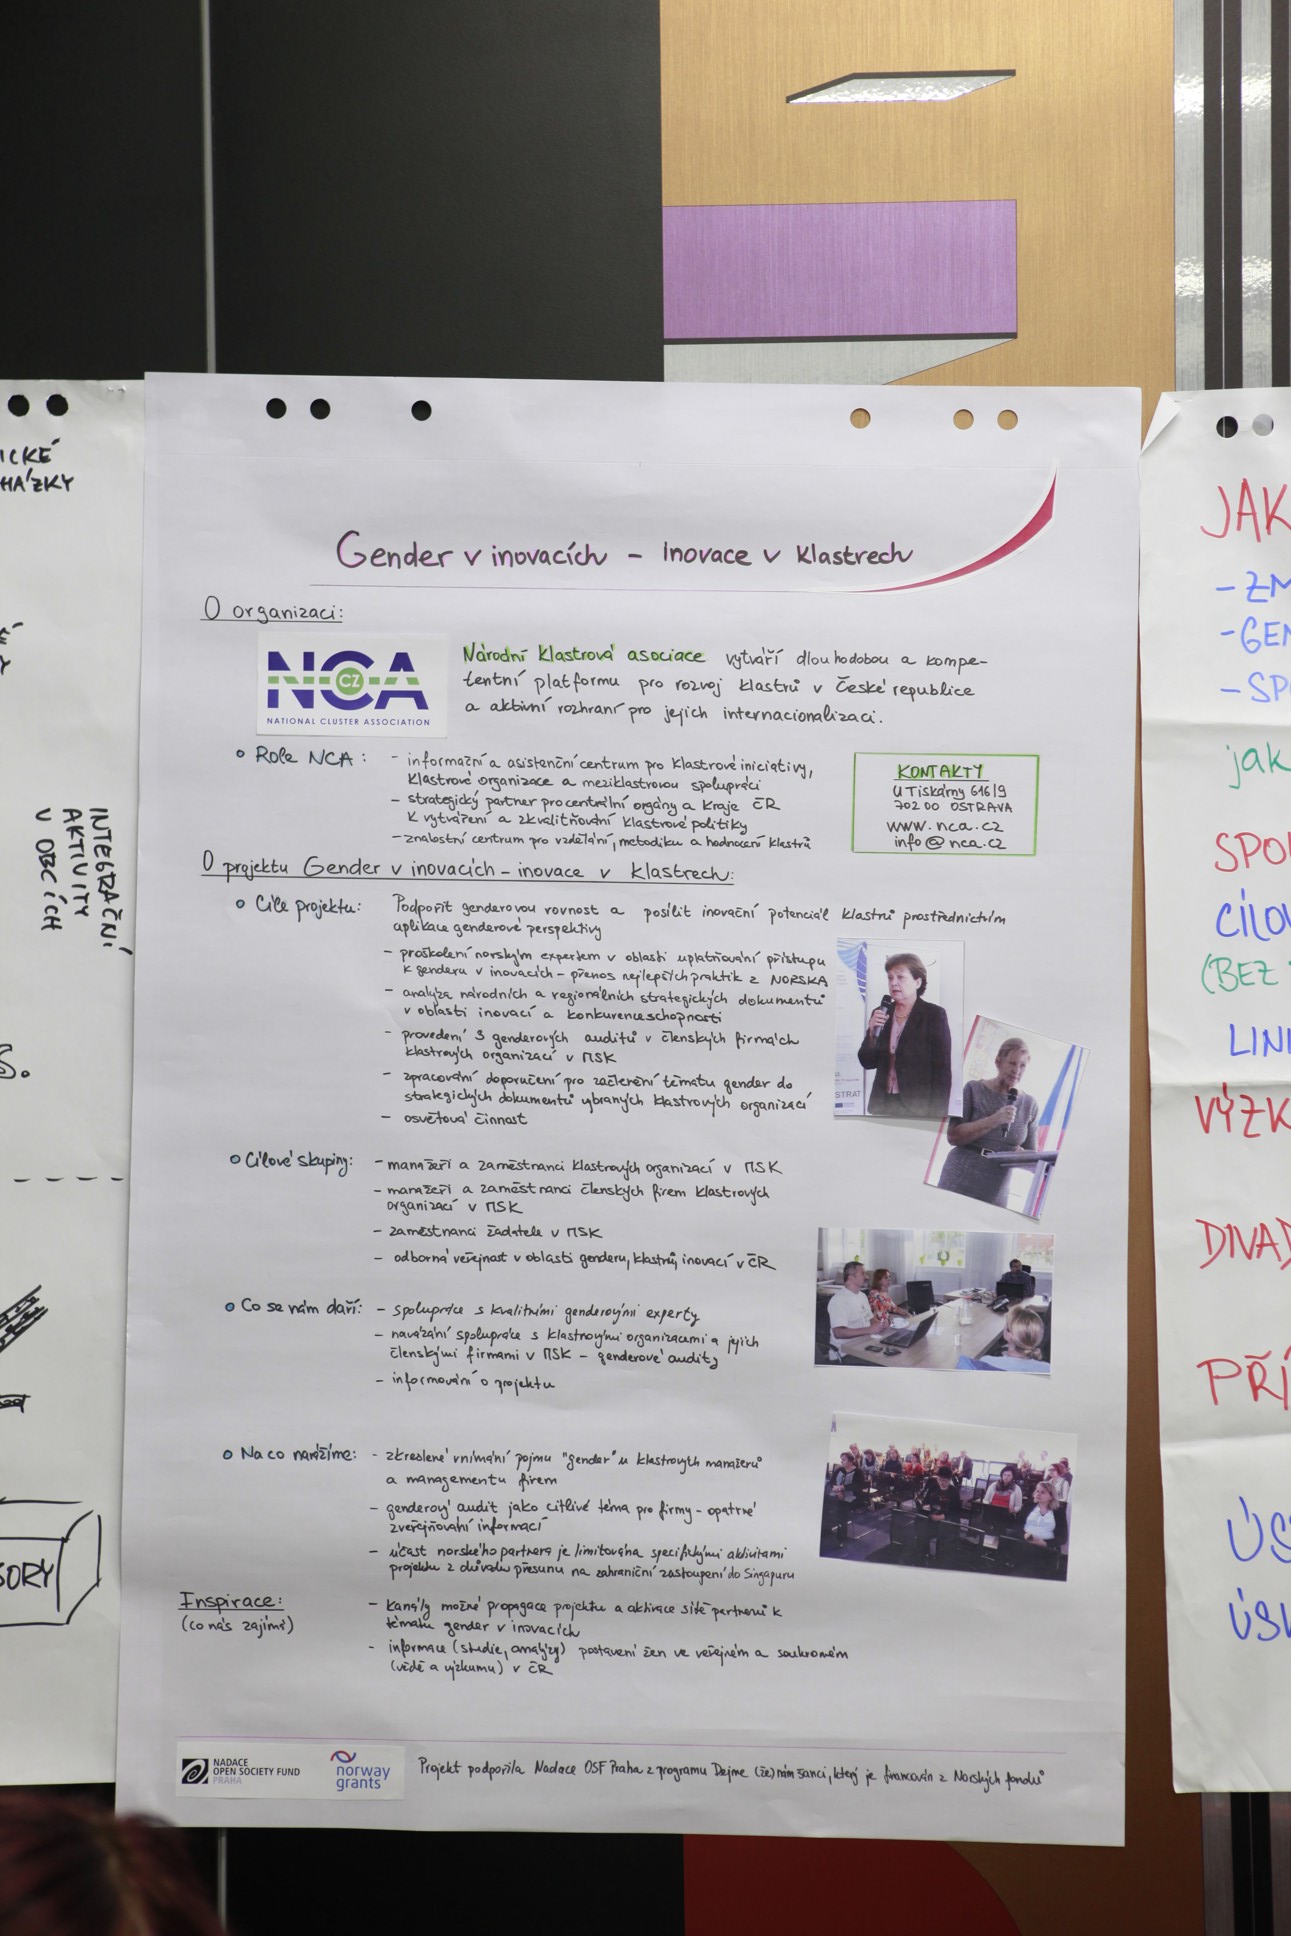 ICKÉ
HÁZKY
INTEGRAČNÍ
AKTIVITY
V OBCÍCH
S.
SORY
Gender v inovacích – Inovace v klastrech
O organizaci:
NCA
CZ
NATIONAL CLUSTER ASSOCIATION
Národní klastrová asociace vytváří dlouhodobou a kompe-
tentní platformu pro rozvoj klastrů v České republice
a aktivní rozhraní pro jejich internacionalizaci.
Role NCA:
– informační a asistenční centrum pro klastrové iniciativy,
klastrové organizace a meziklastrovou spolupráci
– strategický partner pro centrální orgány a kraje ČR
k vytváření a zkvalitňování klastrové politiky
– znalostní centrum pro vzdělání, metodiku a hodnocení klastrů
KONTAKTY
U Tiskárny 616/9
702 00 OSTRAVA
www.nca.cz
info@nca.cz
O projektu Gender v inovacích – inovace v klastrech:
Cíle projektu:
Podpořit genderovou rovnost a posílit inovační potenciál klastrů prostřednictvím
aplikace genderové perspektivy
– proškolení norským expertem v oblasti uplatňování přístupu
k genderu v inovacích – přenos nejlepších praktik z NORSKA
– analýza národních a regionálních strategických dokumentů
v oblasti inovací a konkurenceschopnosti
– provedení 3 genderových auditů v členských firmách
klastrových organizací v MSK
– zpracování doporučení pro začlenění tématu gender do
strategických dokumentů vybraných klastrových organizací
– osvětová činnost
STRAT
Cílové skupiny:
– manažeři a zaměstnanci klastrových organizací v MSK
– manažeři a zaměstnanci členských firem klastrových
organizací v MSK
– zaměstnanci žadatele v MSK
– odborná veřejnost v oblasti genderu, klastrů, inovací v ČR
Co se nám daří:
– spolupráce s kvalitními genderovými experty
– navázání spolupráce s klastrovými organizacemi a jejich
členskými firmami v MSK – genderové audity
– informování o projektu
Na co narážíme:
– zkreslené vnímání pojmu "gender" u klastrových manažerů
a managementu firem
– genderový audit jako citlivé téma pro firmy – opatrné
zveřejňování informací
– účast norského partnera je limitována specifickými aktivitami
projektu z důvodu přesunu na zahraniční zastoupení do Singapuru
Inspirace:
(co nás zajímá)
– kanály možné propagace projektu a aktivace sítě partnerů k
tématu gender v inovacích
– informace (studie, analýzy) postavení žen ve veřejném a soukromém
(vědě a výzkumu) v ČR
NADACE
OPEN SOCIETY FUND
PRAHA
norway
grants
Projekt podpořila Nadace OSF Praha z programu Dejme (že)nám šanci, který je financován z Norských fondů
JAK
– ZM
– GEN
– SPO
jak
SPOL
CÍLOV
(BEZ
LINI
VÝZK
DIVAD
PŘÍ
ÚS
ÚSK